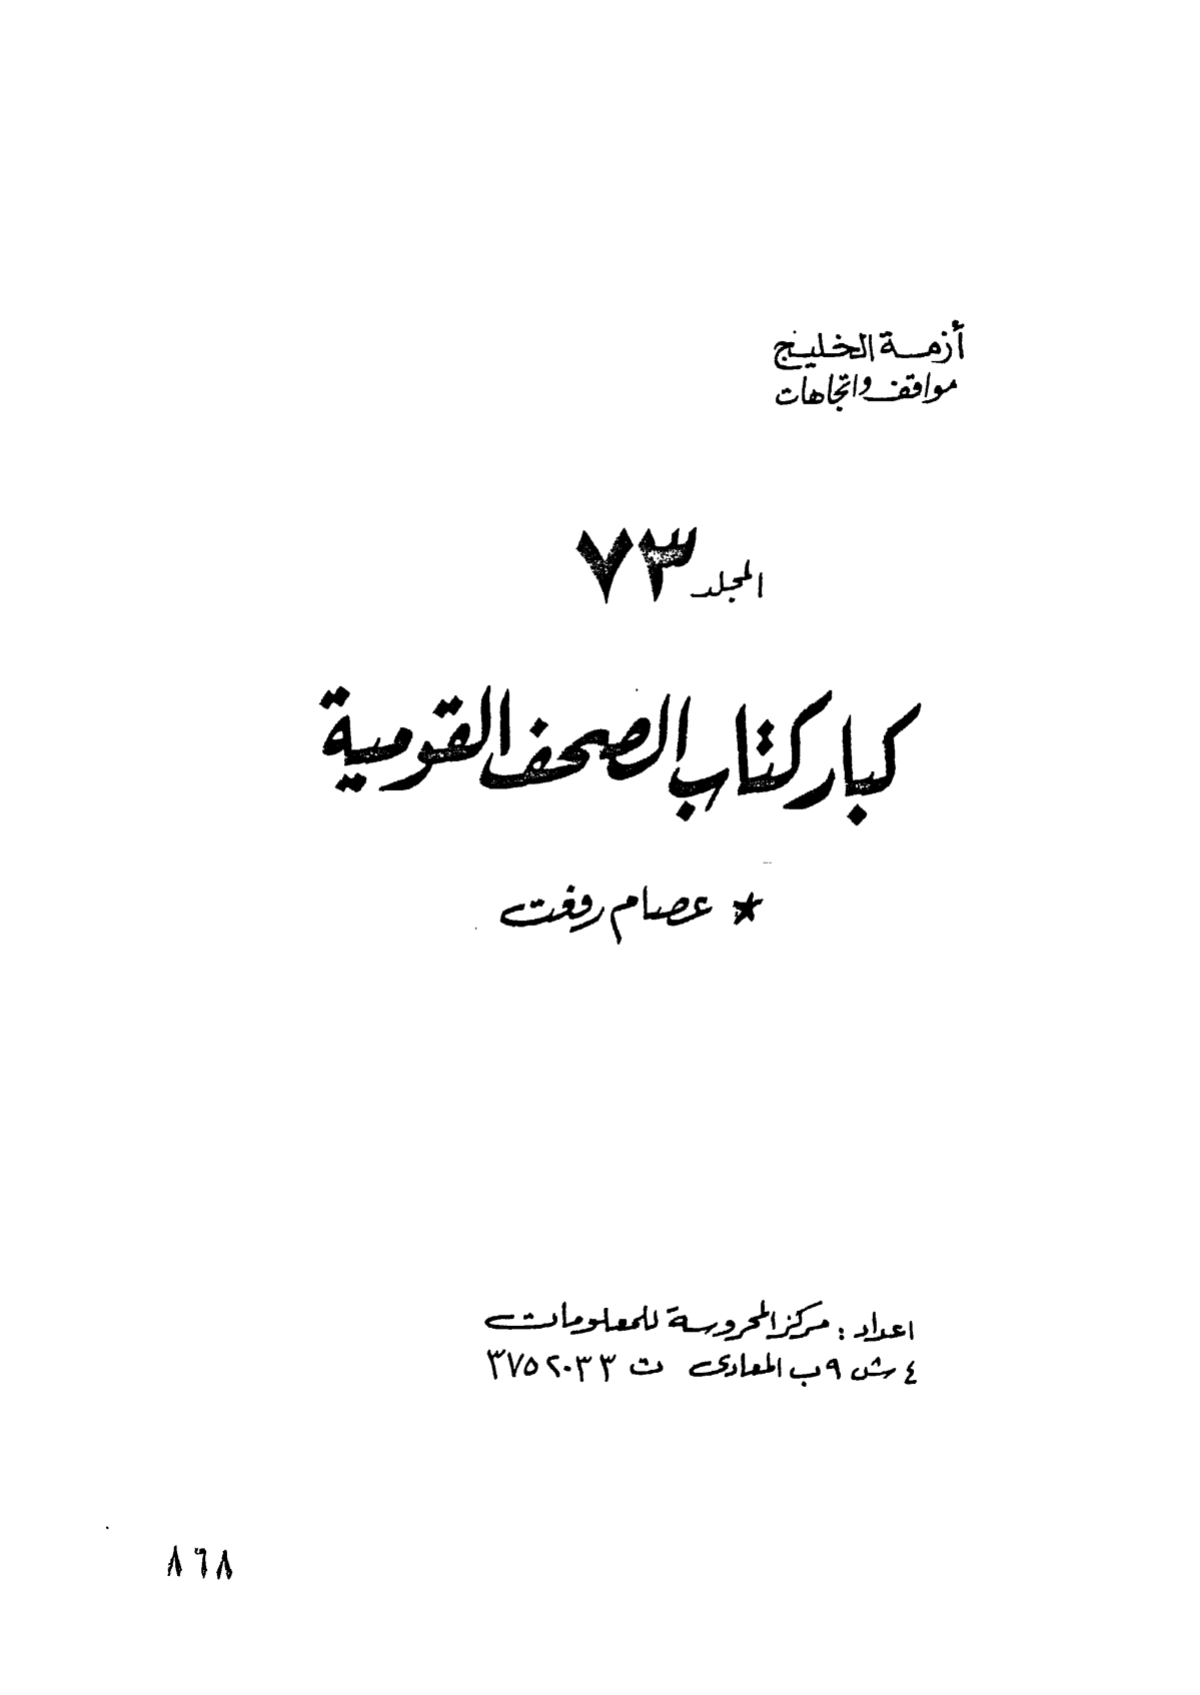 أزمة الخليج
مواقف واتجاهات
المجلد ٧٣
كبار كتاب الصحف القومية
* عصام رفعت
اعداد : مركز المحروسة للمعلومات
٤ ش ٩ ب المعادى ت ٣٧٥٢٠٣٣
٨٦٨